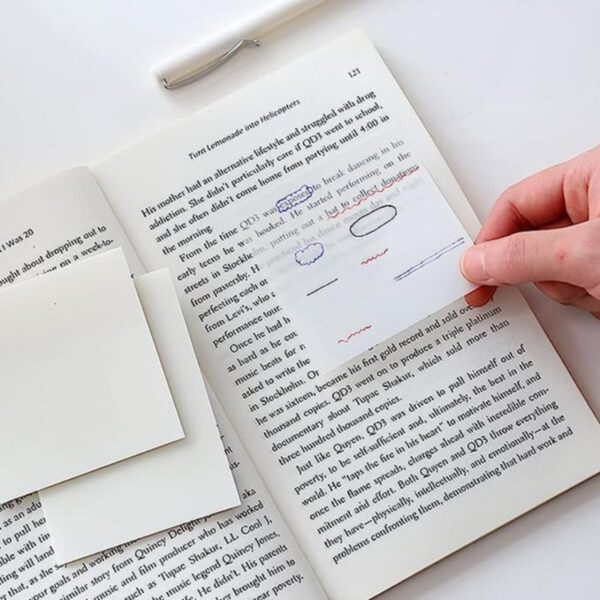 l Was 20
ought about dropping out to
121
Turn Lemonade into Helicopters
His mother had an alternative lifestyle and struggled with drug
addiction. She didn't particularly care if QD3 went to school,
and she often didn't come from partying until 4:00 in
the morning.
From the time QD3 was exposed to break dancing in his
early teens he was hooked. He started performing on the
streets in Stockholm, putting out a hat to collect donations
from passersby. H
perfecting each
from Levi's, who
performance tour.
Once he had h
as hard as he cou
music beats for
asked to write the
in Stockholm. Or
he was sixteen, became his first gold record and sold over
thousand copies. QD3 went on to produce a triple platinum
documentary about Tupac Shakur, which sold more than
three hundred thousand copies.
Just like Quyen, QD3 was driven to pull himself out of
poverty, to be self-sufficient and, ultimately, the best in the
world. He "taps the fire in his heart" to motivate himself, and
once the flame spreads, charges ahead with incredible com-
mitment and effort. Both Quyen and QD3 throw everything
they have—physically, intellectually, and emotionally—at the
problems confronting them, demonstrating that hard work and
aka
similar story from Quincy Delight
music and film producer who has worked
such as Tupac Shakur, LL Cool J,
the music legend Quincy Jones,
life. He didn't. His parents
her brought him to
near poverty.